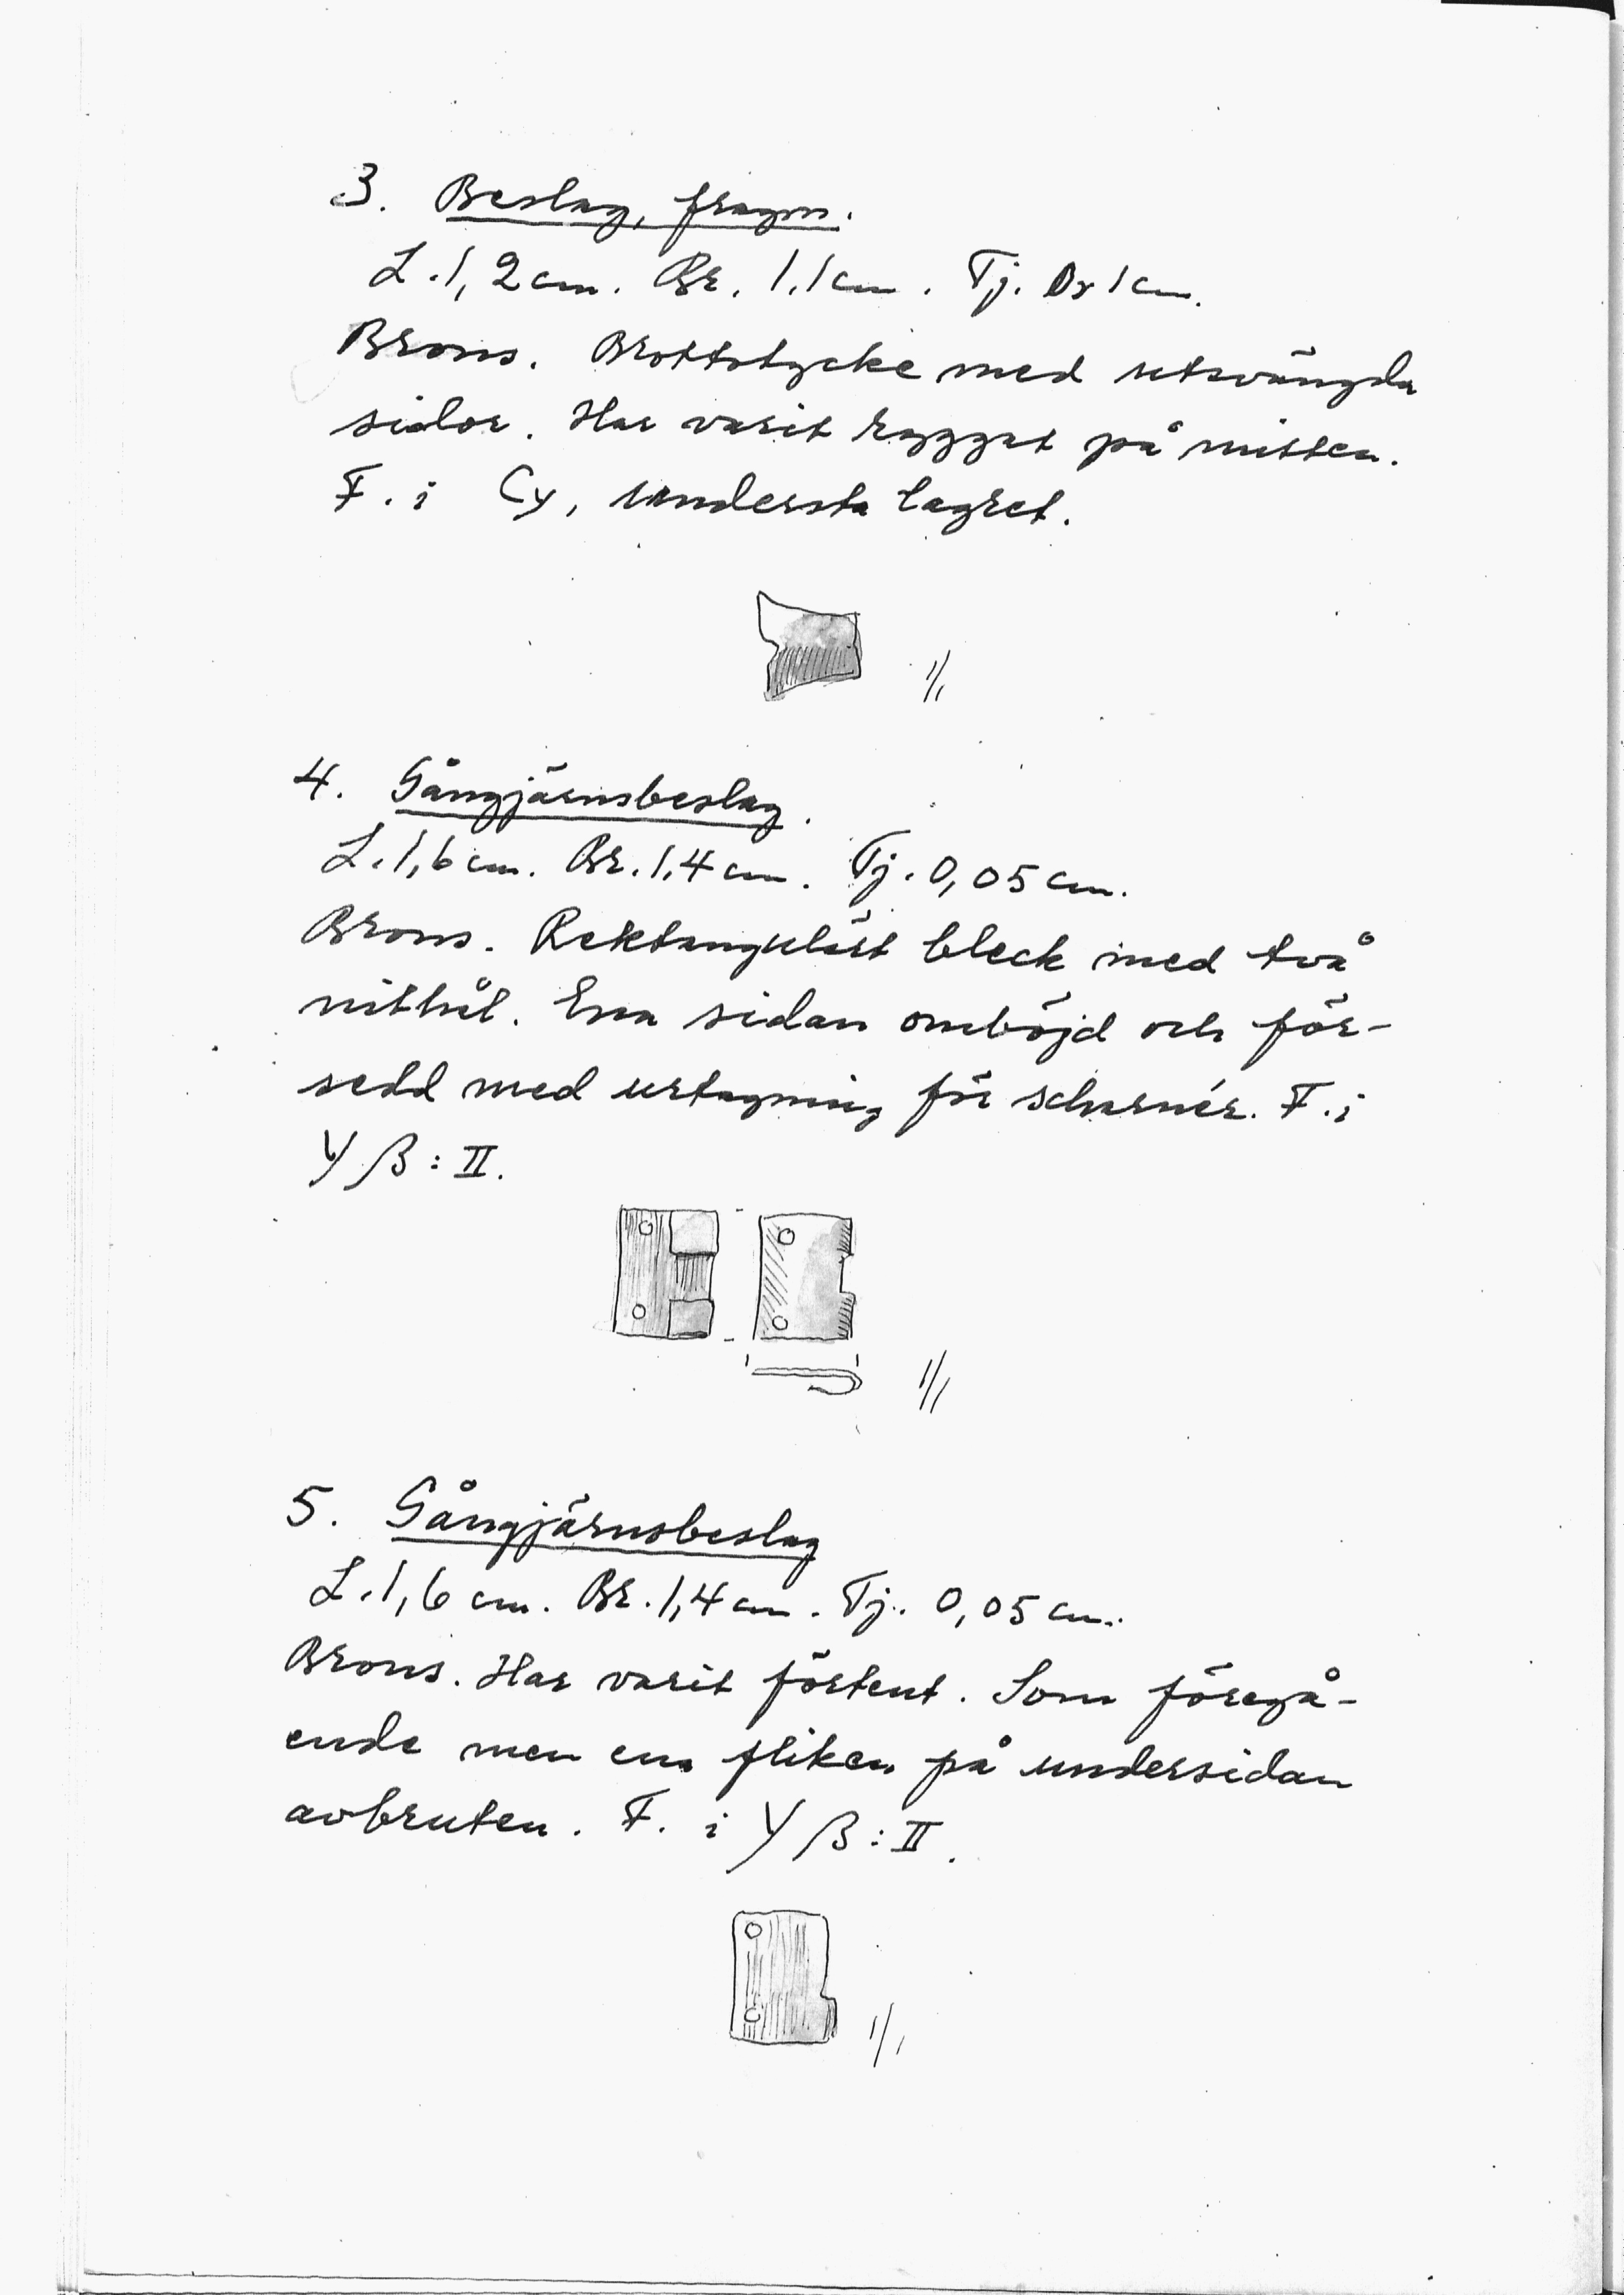 3. Beslag, fragm.
L. 1,2 cm. Br. 1,1 cm. Tj. 0,1 cm.
Brons. Brottstycke med utsvängda
sidor. Har varit ryggat på mitten.
F. i Cy, understa lagret.
1/1
4. Gångjärnsbeslag.
L. 1,6 cm. Br. 1,4 cm. Tj. 0,05 cm.
Brons. Rektangulärt bleck med två
nithål. Ena sidan omböjd och för-
sedd med urtagning för scharnér. F. i
Y β : II.
1/1
5. Gångjärnsbeslag
L. 1,6 cm. Br. 1,4 cm. Tj. 0,05 cm.
Brons. Har varit förtent. Som föregå-
ende men ena fliken på undersidan
avbruten. F. i Y β : II.
1/1